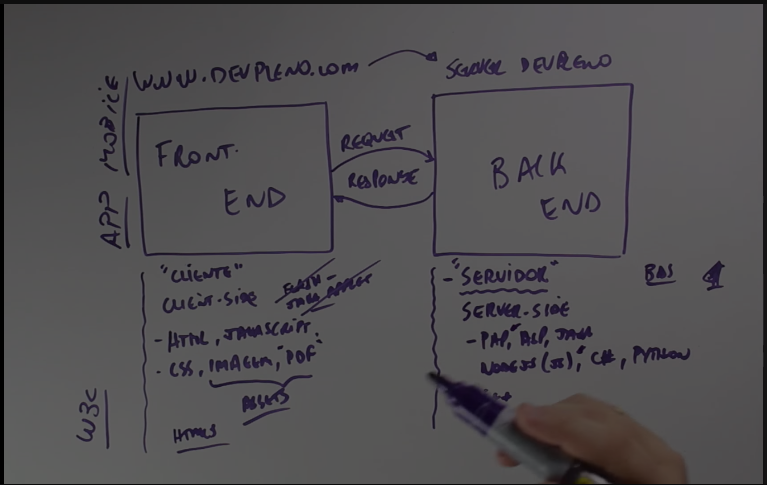 WWW.DEVPLENO.COM
SERVER DEVPLENO
APP MOBILE
FRONT-
END
REQUEST
RESPONSE
BACK
END
"CLIENTE"
CLIENT-SIDE
FLASH -
JAVA APPLET
- HTML, JAVASCRIPT
- CSS, IMAGEM, "PDF"
ASSETS
HTML5
W3C
- "SERVIDOR"
SERVER-SIDE
- PHP, ASP, JAVA
NODEJS (JS), C#, PYTHON